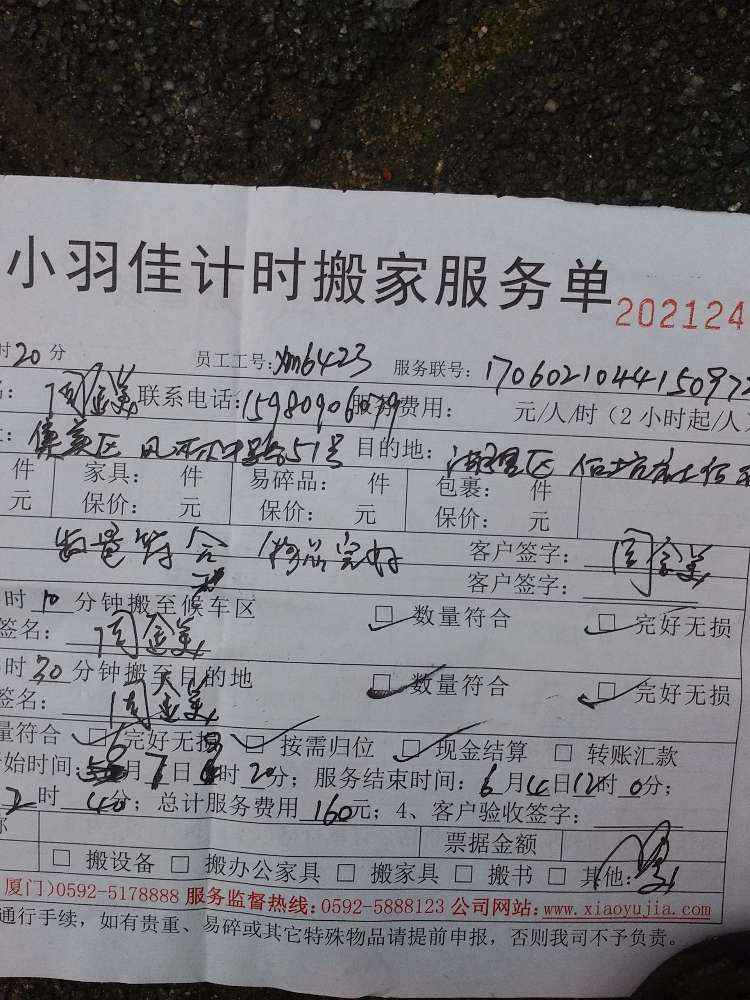 小羽佳计时搬家服务单 202124
时20分 员工工号:xm6423 服务联号:
周金美 联系电话:15980906079 服务费用: 元/人/时(2小时起/人
集美区 51号 目的地: 湖里区
件 家具: 件 易碎品: 件 包裹: 件
元 保价: 元 保价: 元 保价: 元
数量符合 物品完好 客户签字: 周金美
客户签字:
时10分钟搬至候车区 □数量符合 □完好无损
签名: 周金美
时30分钟搬至目的地 □数量符合 □完好无损
签名: 周金美
量符合 □完好无损 □按需归位 □现金结算 □转账汇款
始时间: 月7日 时20分; 服务结束时间: 6月4日12时0分;
2时40分; 总计服务费用160元; 4、客户验收签字:
票据金额
□搬设备 □搬办公家具 □搬家具 □搬书 □其他:
厦门)0592-5178888 服务监督热线:0592-5888123 公司网站:www.xiaoyujia.com
通行手续,如有贵重、易碎或其它特殊物品请提前申报,否则我司不予负责。